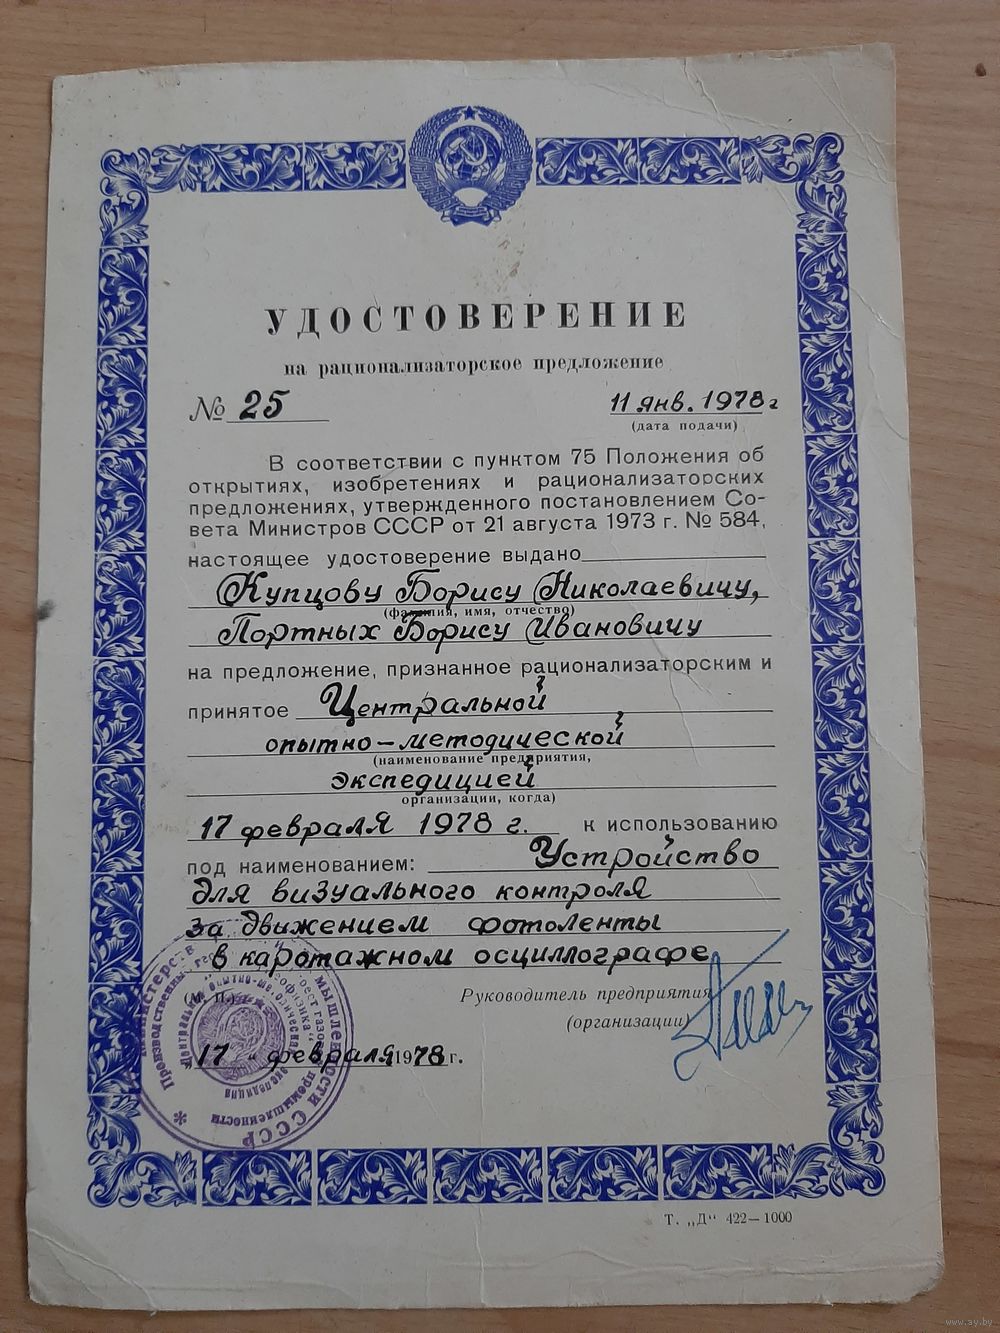 УДОСТОВЕРЕНИЕ
на рационализаторское предложение
№ 25 11 янв. 1978 г
(дата подачи)
В соответствии с пунктом 75 Положения об
открытиях, изобретениях и рационализаторских
предложениях, утвержденного постановлением Со-
вета Министров СССР от 21 августа 1973 г. № 584,
настоящее удостоверение выдано
Купцову Борису Николаевичу,
(фамилия, имя, отчество)
Портных Борису Ивановичу
на предложение, признанное рационализаторским и
принятое Центральной
опытно-методической
(наименование предприятия,
экспедицией
организации, когда)
17 февраля 1978 г. к использованию
под наименованием: Устройство
для визуального контроля
за движением фотоленты
в каротажном осциллографе
(М. П.)
Руководитель предприятия
(организации)
17 " февраля 1978 г.
Производственный
мышленности СССР
Центральная опытно-методическая экспедиция
промышленности
Т. „Д" 422—1000
www.ay.by